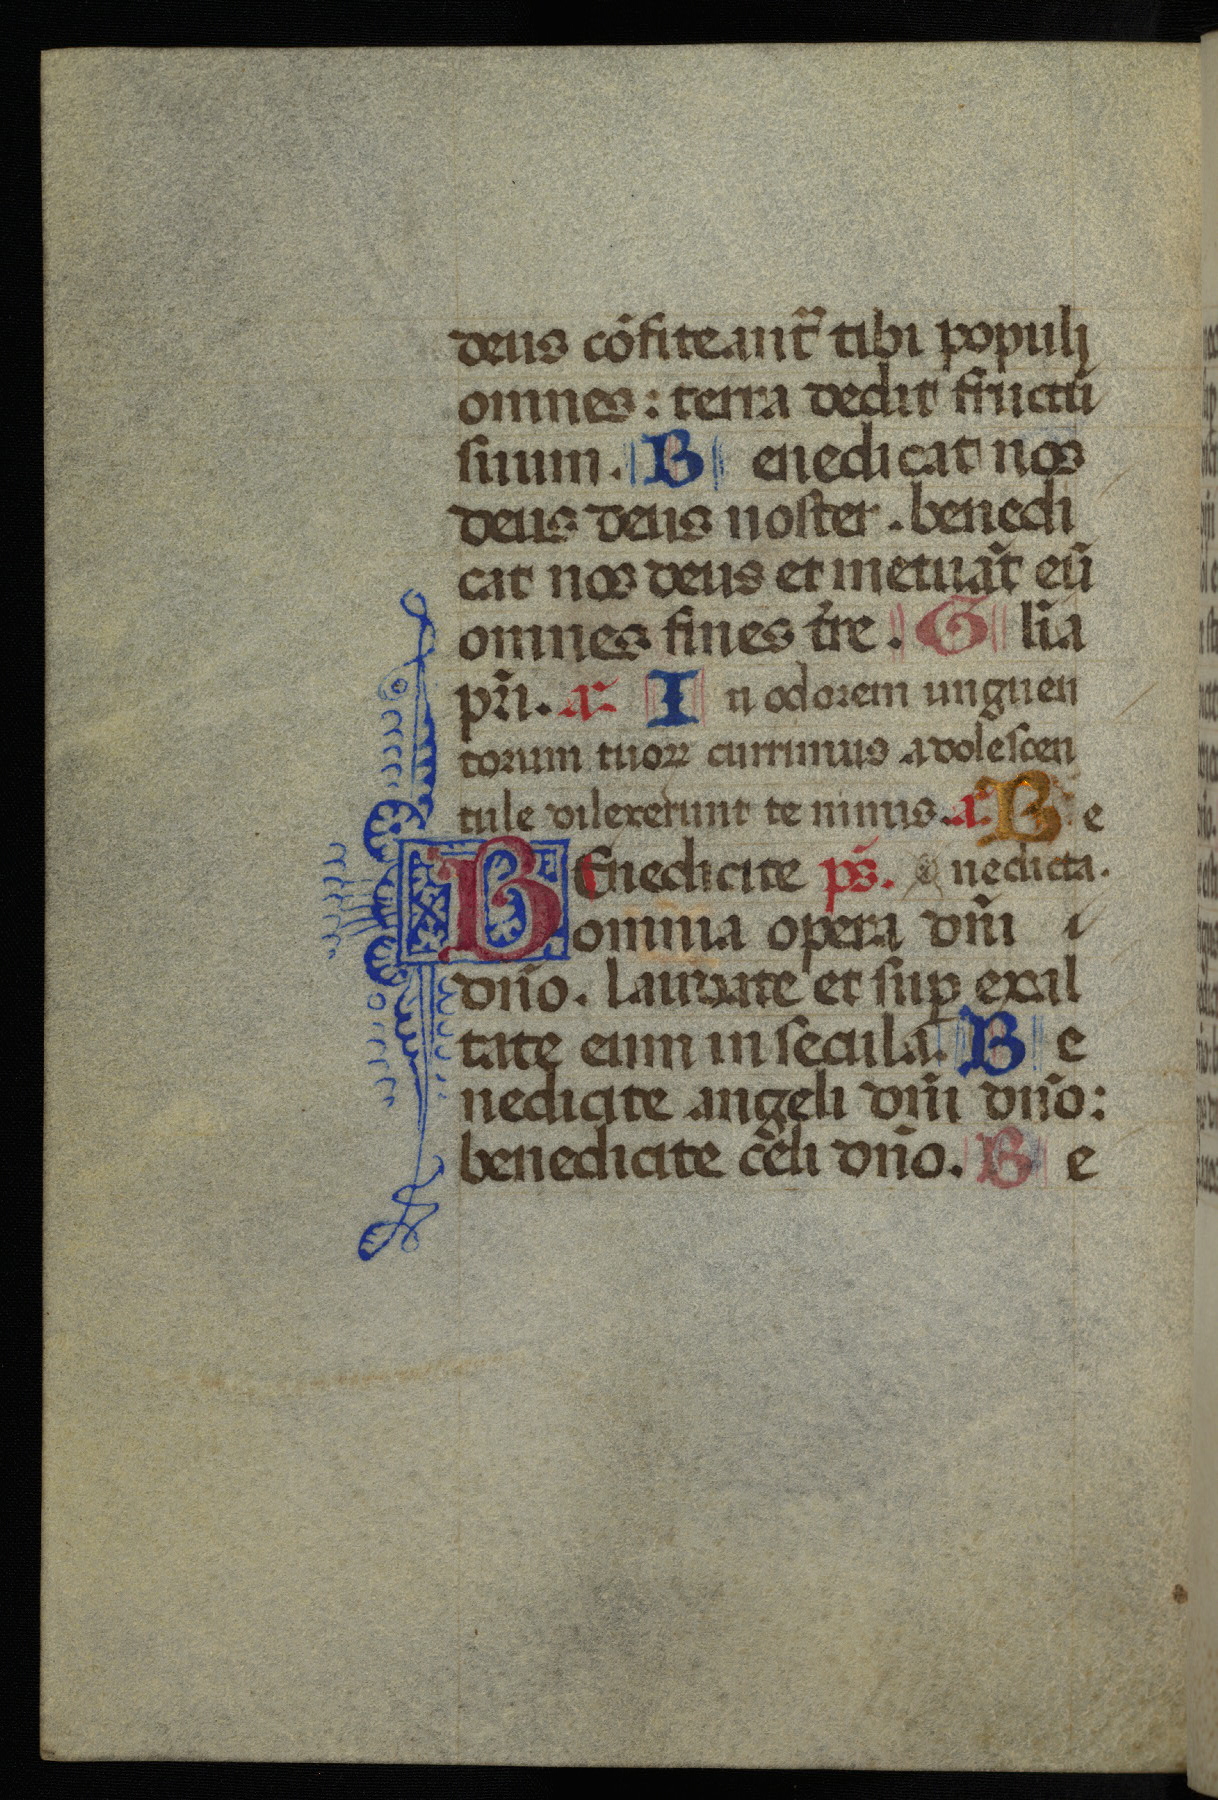 deus cōfiteant̃ tibi populj
omnes : terra dedit fructū
suum. B enedicat nos
deus deus noster. benedi
cat nos deus et metuãt eũ
omnes fines t̃re. G lĩa
pr̃i. a. I n odorem unguen
torum tuoꝝ currimus adolescen
tule dilexerunt te nimis. a. B e
BEnedicite ps̃. nedicta.
omnia opera dñi
dño. laudate et suꝑ exal
tate eum in secula. B e
nedicite angeli dñi dño:
benedicite c̃eli dño. B e